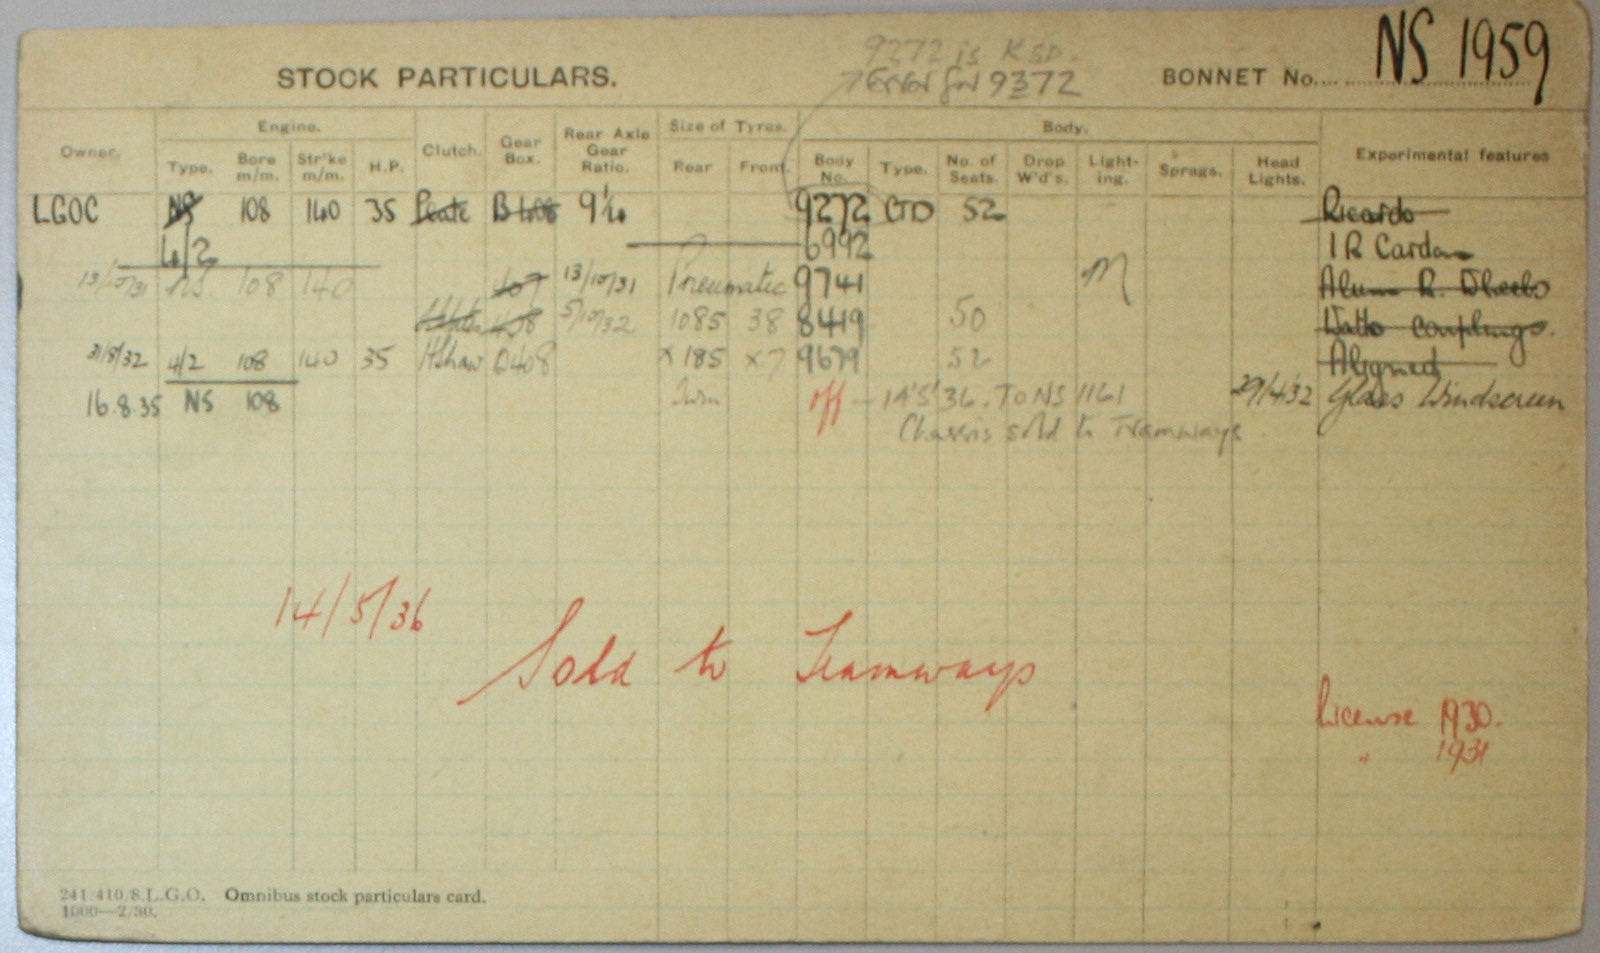 9272 is KSD.
Error for 9372
STOCK PARTICULARS.
BONNET No.... NS 1959
Owner. Engine. Clutch. Gear Box. Rear Axle Gear Ratio. Size of Tyres. Body. Experimental features
Type. Bore m/m. Str'ke m/m. H.P. Rear Front. Body No. Type. No. of Seats. Drop W'd's. Light-ing. Sprags. Head Lights.
LGOC NS 108 140 35 Plate B 408 9¼ 9272 CTD 52 Ricardo
4/2 6992 1 R Cardan
13/10/31 NS 108 140 407 13/10/31 Pneumatic 9741 M Alum R. Wheels
408 5/10/32 1085 38 8419 50 couplings.
31/8/32 4/2 108 140 35 Hshaw 408 × 185 × 7 9679 52 Aligned
16.8.35 NS 108 Twin off - 14'5'36. To NS 1161 29/4/32 Glass Windscreen
Chassis sold to Tramways.
14/5/36
Sold to Tramways
License 1930.
" 1931
241/410/8.L.G.O. Omnibus stock particulars card.
1000—2/30.